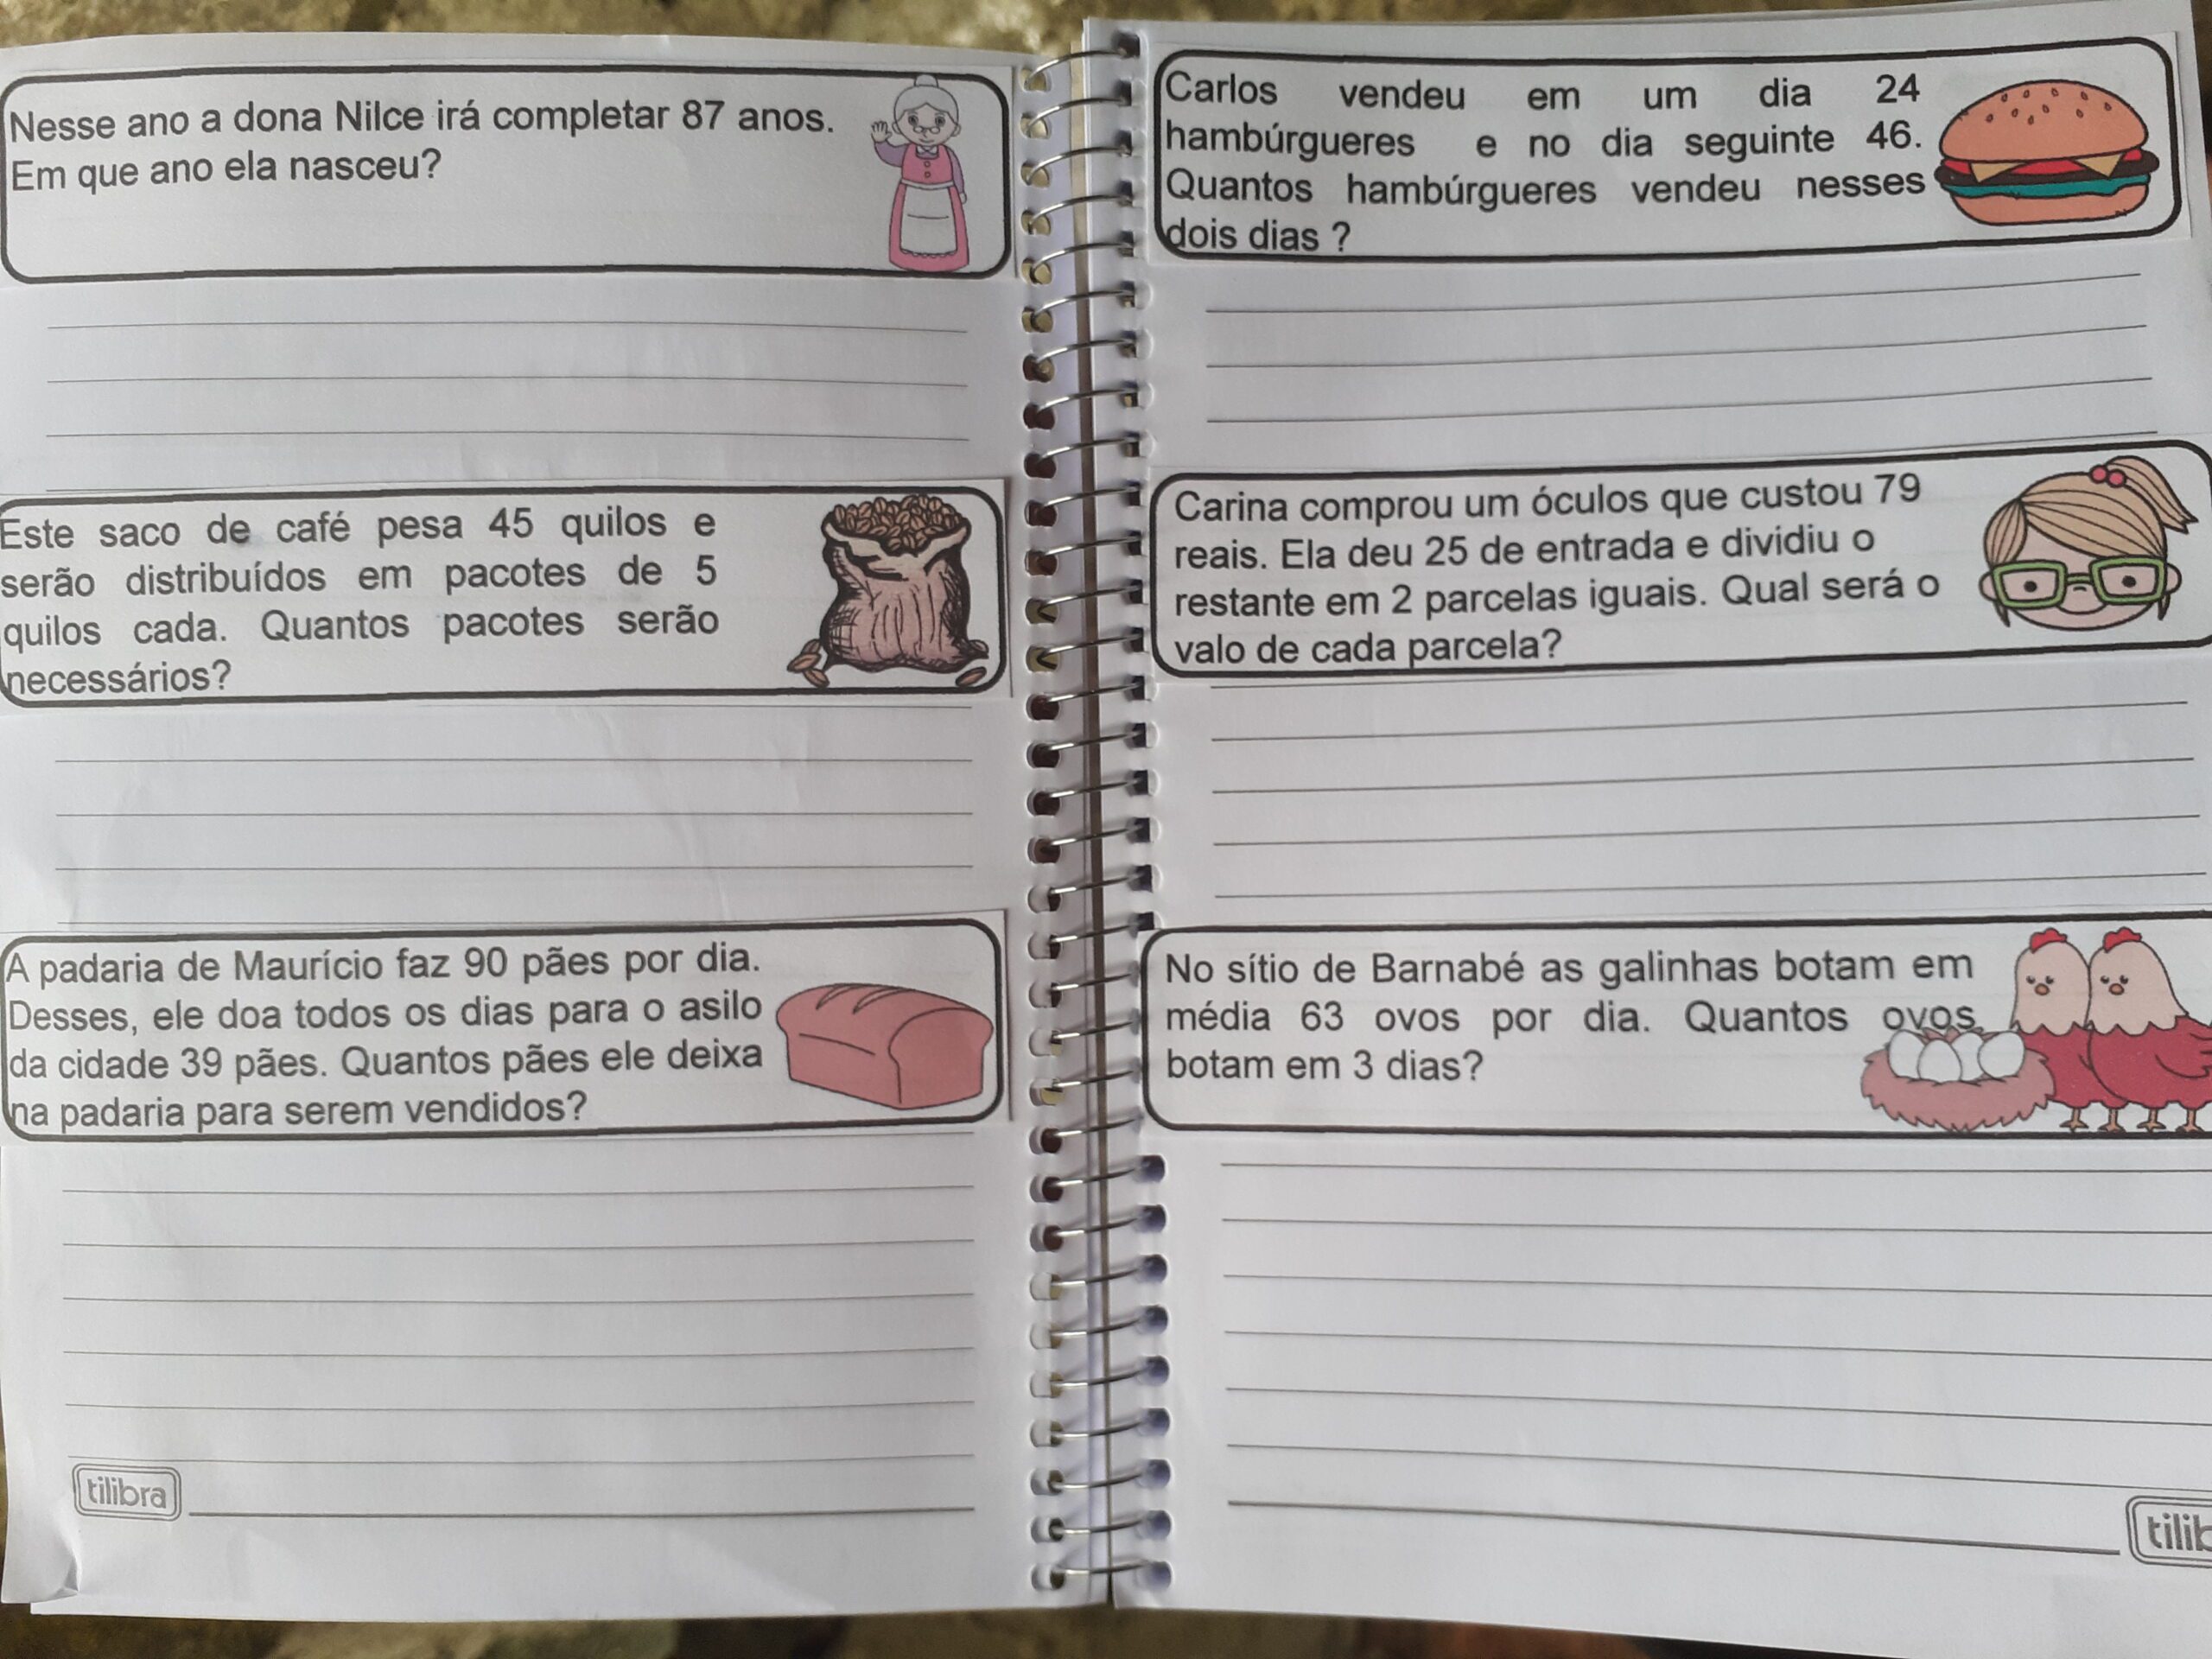 Nesse ano a dona Nilce irá completar 87 anos.
Em que ano ela nasceu?
Este saco de café pesa 45 quilos e
serão distribuídos em pacotes de 5
quilos cada. Quantos pacotes serão
necessários?
A padaria de Maurício faz 90 pães por dia.
Desses, ele doa todos os dias para o asilo
da cidade 39 pães. Quantos pães ele deixa
na padaria para serem vendidos?
tilibra
Carlos vendeu em um dia 24
hambúrgueres e no dia seguinte 46.
Quantos hambúrgueres vendeu nesses
dois dias ?
Carina comprou um óculos que custou 79
reais. Ela deu 25 de entrada e dividiu o
restante em 2 parcelas iguais. Qual será o
valo de cada parcela?
No sítio de Barnabé as galinhas botam em
média 63 ovos por dia. Quantos ovos
botam em 3 dias?
tilib